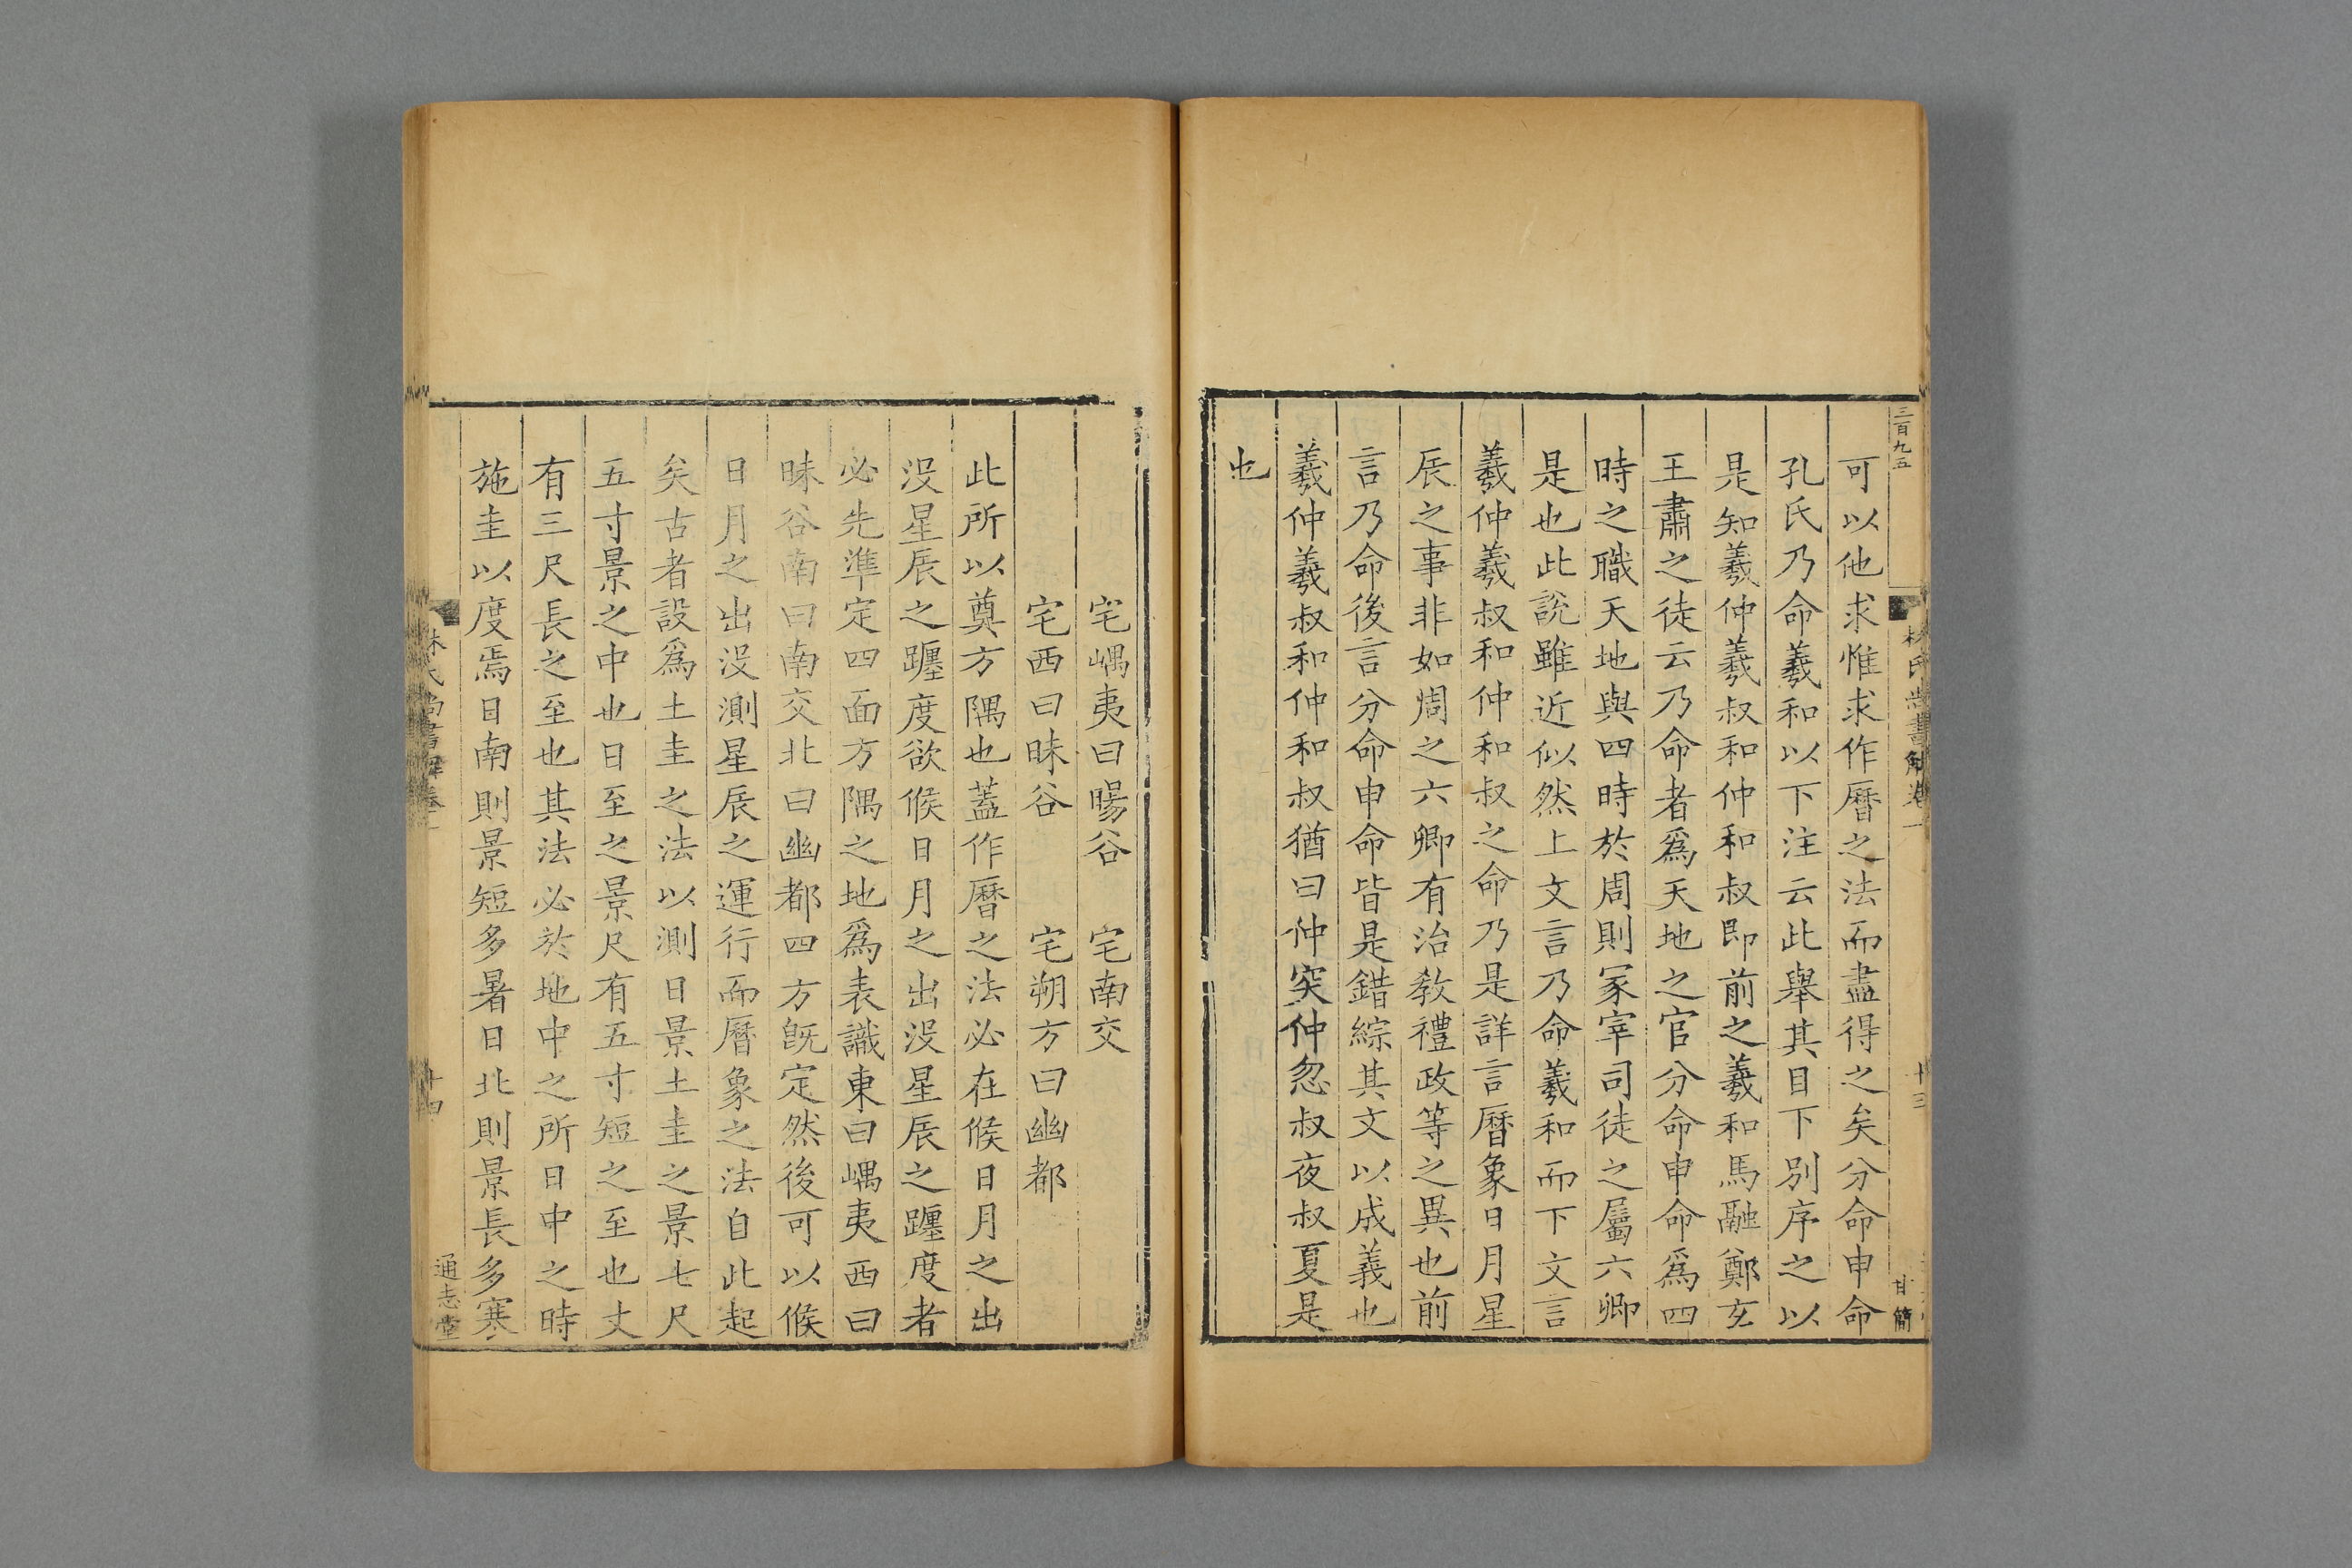 三百九五
可以他求惟求作曆之法而盡得之矣分命申命
孔氏乃命羲和以下注云此舉其目下別序之以
是知羲仲羲叔和仲和叔即前之羲和馬融鄭玄
王肅之徒云乃命者爲天地之官分命申命爲四
時之職天地與四時於周則冢宰司徒之屬六卿
是也此說雖近似然上文言乃命羲和而下文言
羲仲羲叔和仲和叔之命乃是詳言曆象日月星
辰之事非如周之六卿有治教禮政等之異也前
言乃命後言分命申命皆是錯綜其文以成義也
羲仲羲叔和仲和叔猶曰仲突仲忽叔夜叔夏是
也
林氏尚書解卷一
十三
甘簡
宅嵎夷曰暘谷 宅南交
宅西曰昧谷 宅朔方曰幽都
此所以奠方隅也蓋作曆之法必在候日月之出
没星辰之躔度欲候日月之出没星辰之躔度者
必先準定四面方隅之地爲表識東曰嵎夷西曰
昧谷南曰南交北曰幽都四方既定然後可以候
日月之出没測星辰之運行而曆象之法自此起
矣古者設爲土圭之法以測日景土圭之景七尺
五寸景之中也日至之景尺有五寸短之至也丈
有三尺長之至也其法必於地中之所日中之時
施圭以度焉日南則景短多暑日北則景長多寒
林氏尚書解卷一
十四
通志堂